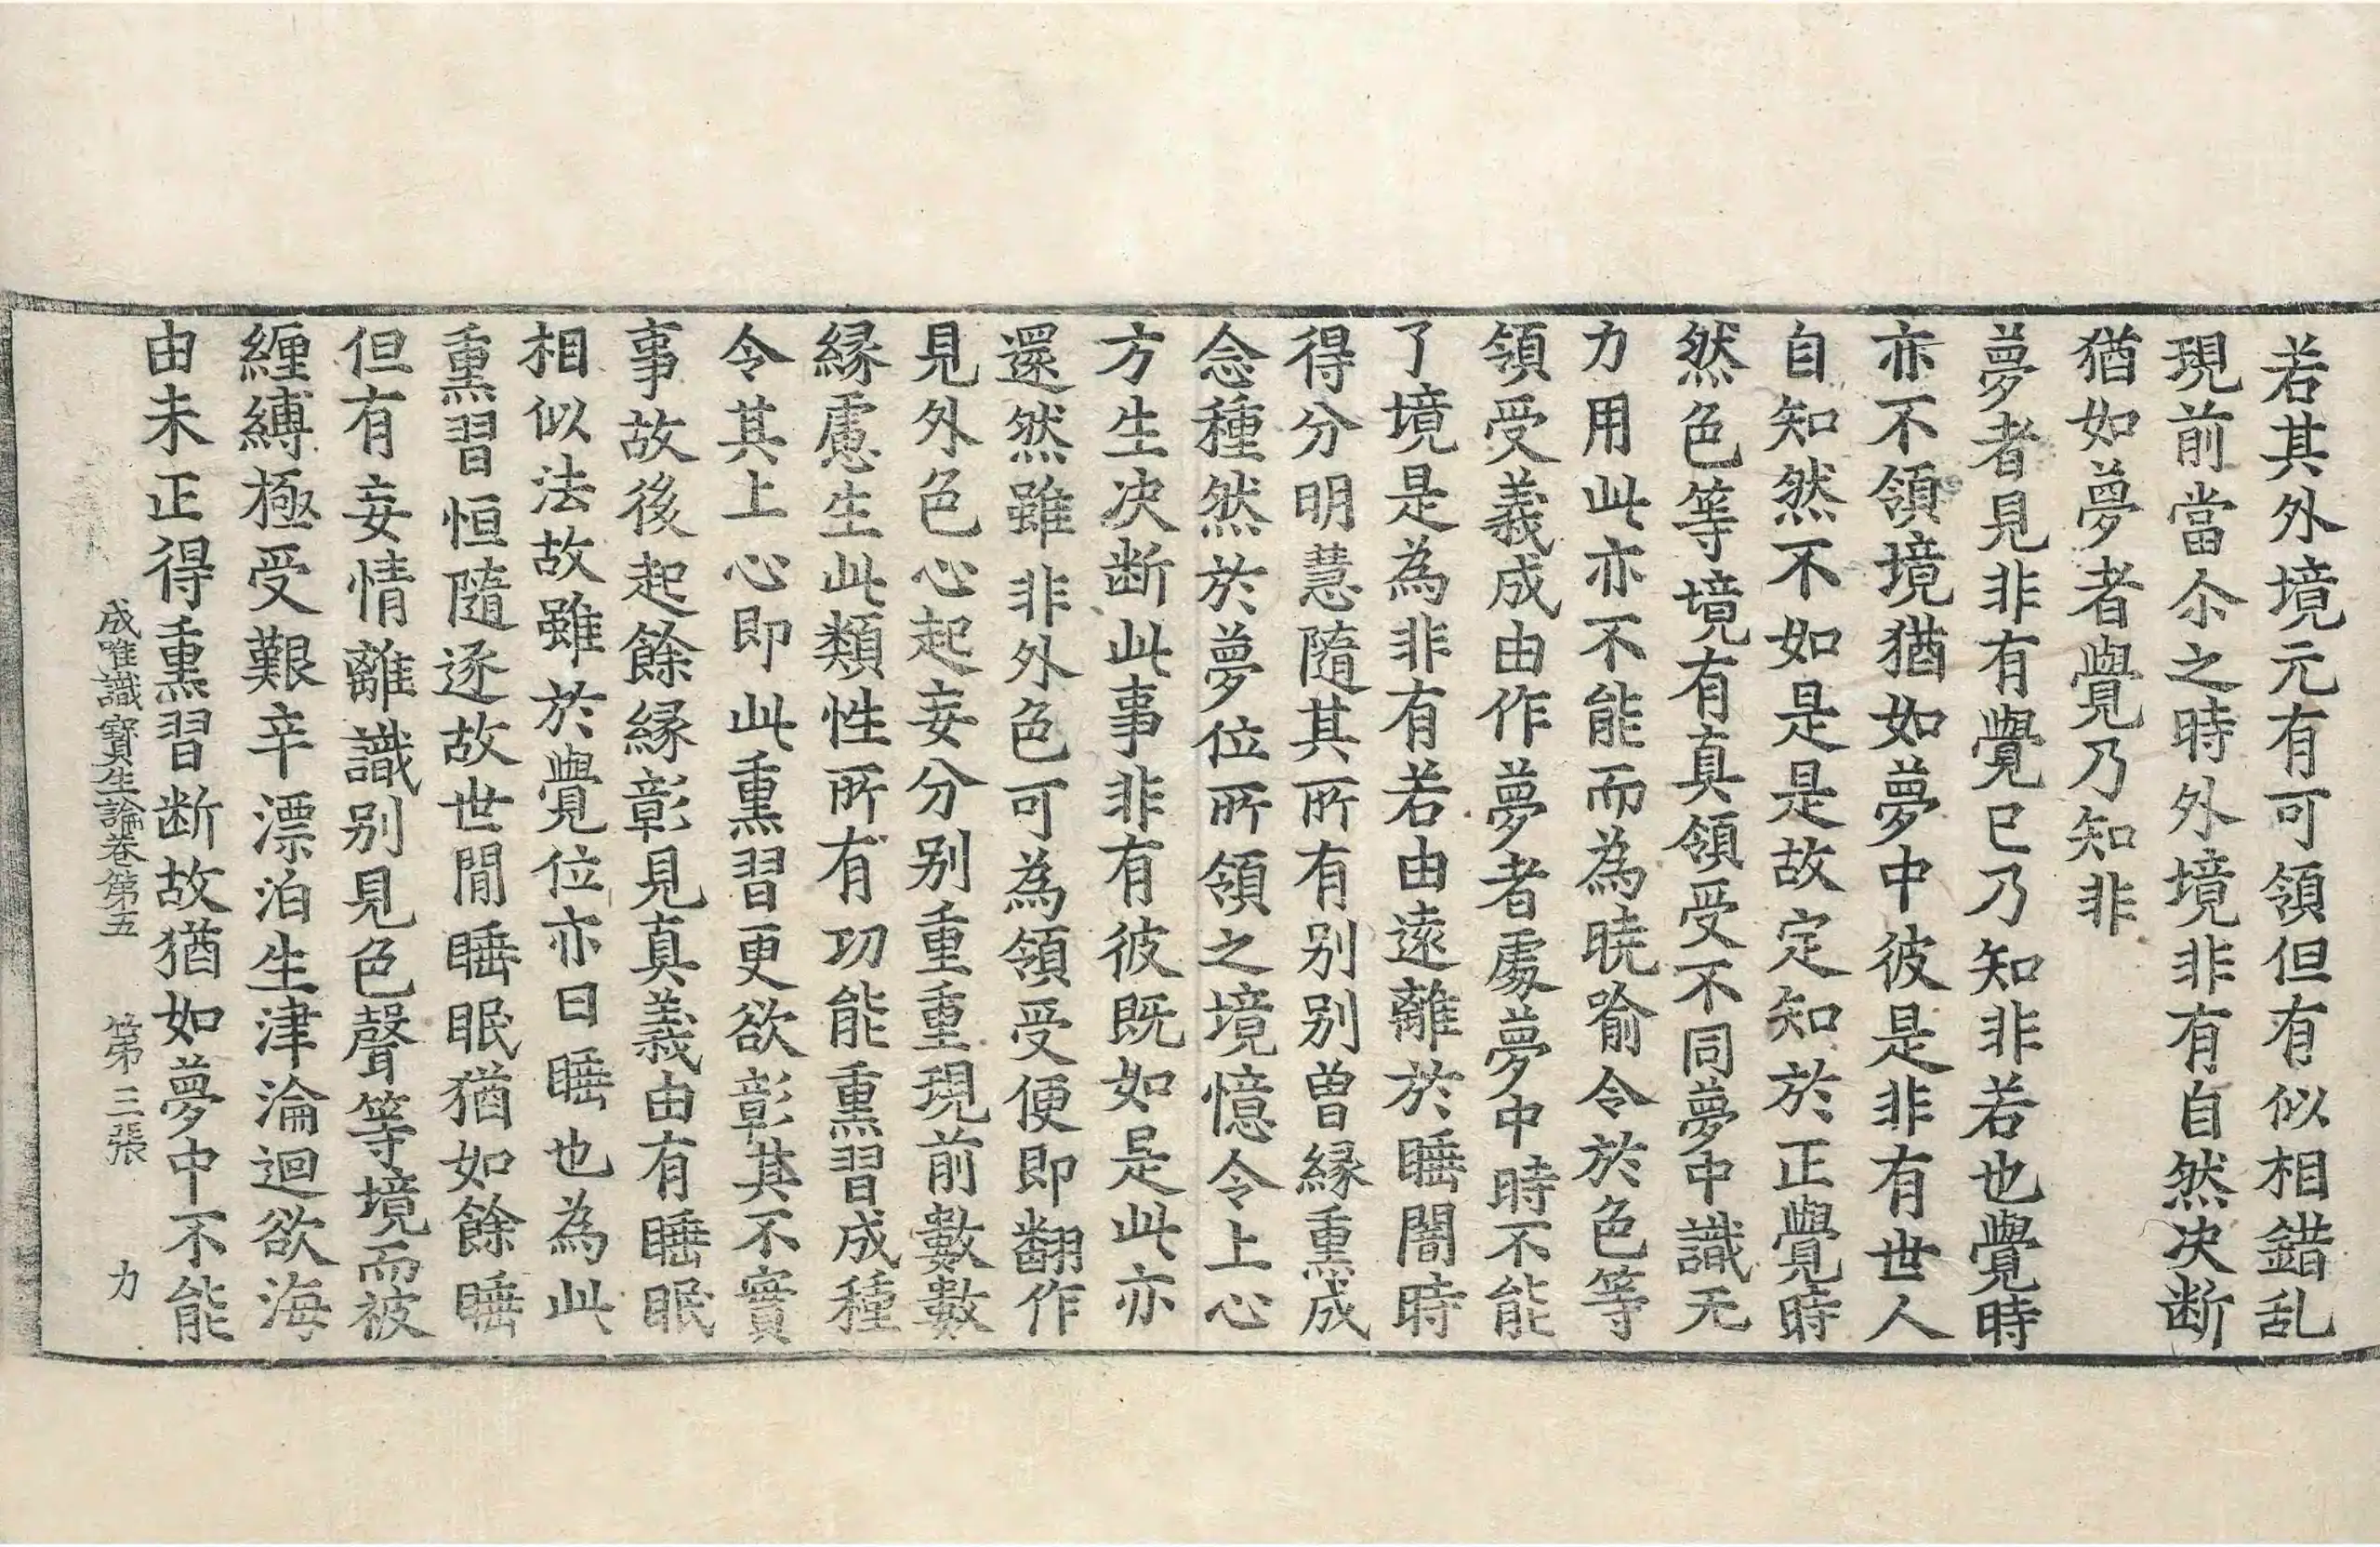 若其外境元有可領但有似相錯乱
現前當尒之時外境非有自然决断
猶如夢者覺乃知非
夢者見非有覺已乃知非若也覺時
亦不領境猶如夢中彼是非有世人
自知然不如是是故定知於正覺時
然色等境有真領受不同夢中識无
力用此亦不能而為曉喻令於色等
領受義成由作夢者處夢中時不能
了境是為非有若由遠離於睡闇時
得分明慧隨其所有别别曾縁熏成
念種然於夢位所領之境憶令上心
方生决断此事非有彼既如是此亦
還然雖非外色可為領受便即翻作
見外色心起妄分别重重現前數數
縁慮生此類性所有功能熏習成種
令其上心即此熏習更欲彰其不實
事故後起餘縁彰見真義由有睡眠
相似法故雖於覺位亦曰睡也為此
熏習恒隨逐故世間睡眠猶如餘睡
但有妄情離識别見色聲等境而被
纏縛極受艱辛漂泊生津淪迴欲海
由未正得熏習断故猶如夢中不能
成唯識寶生論卷第五 第三張 力